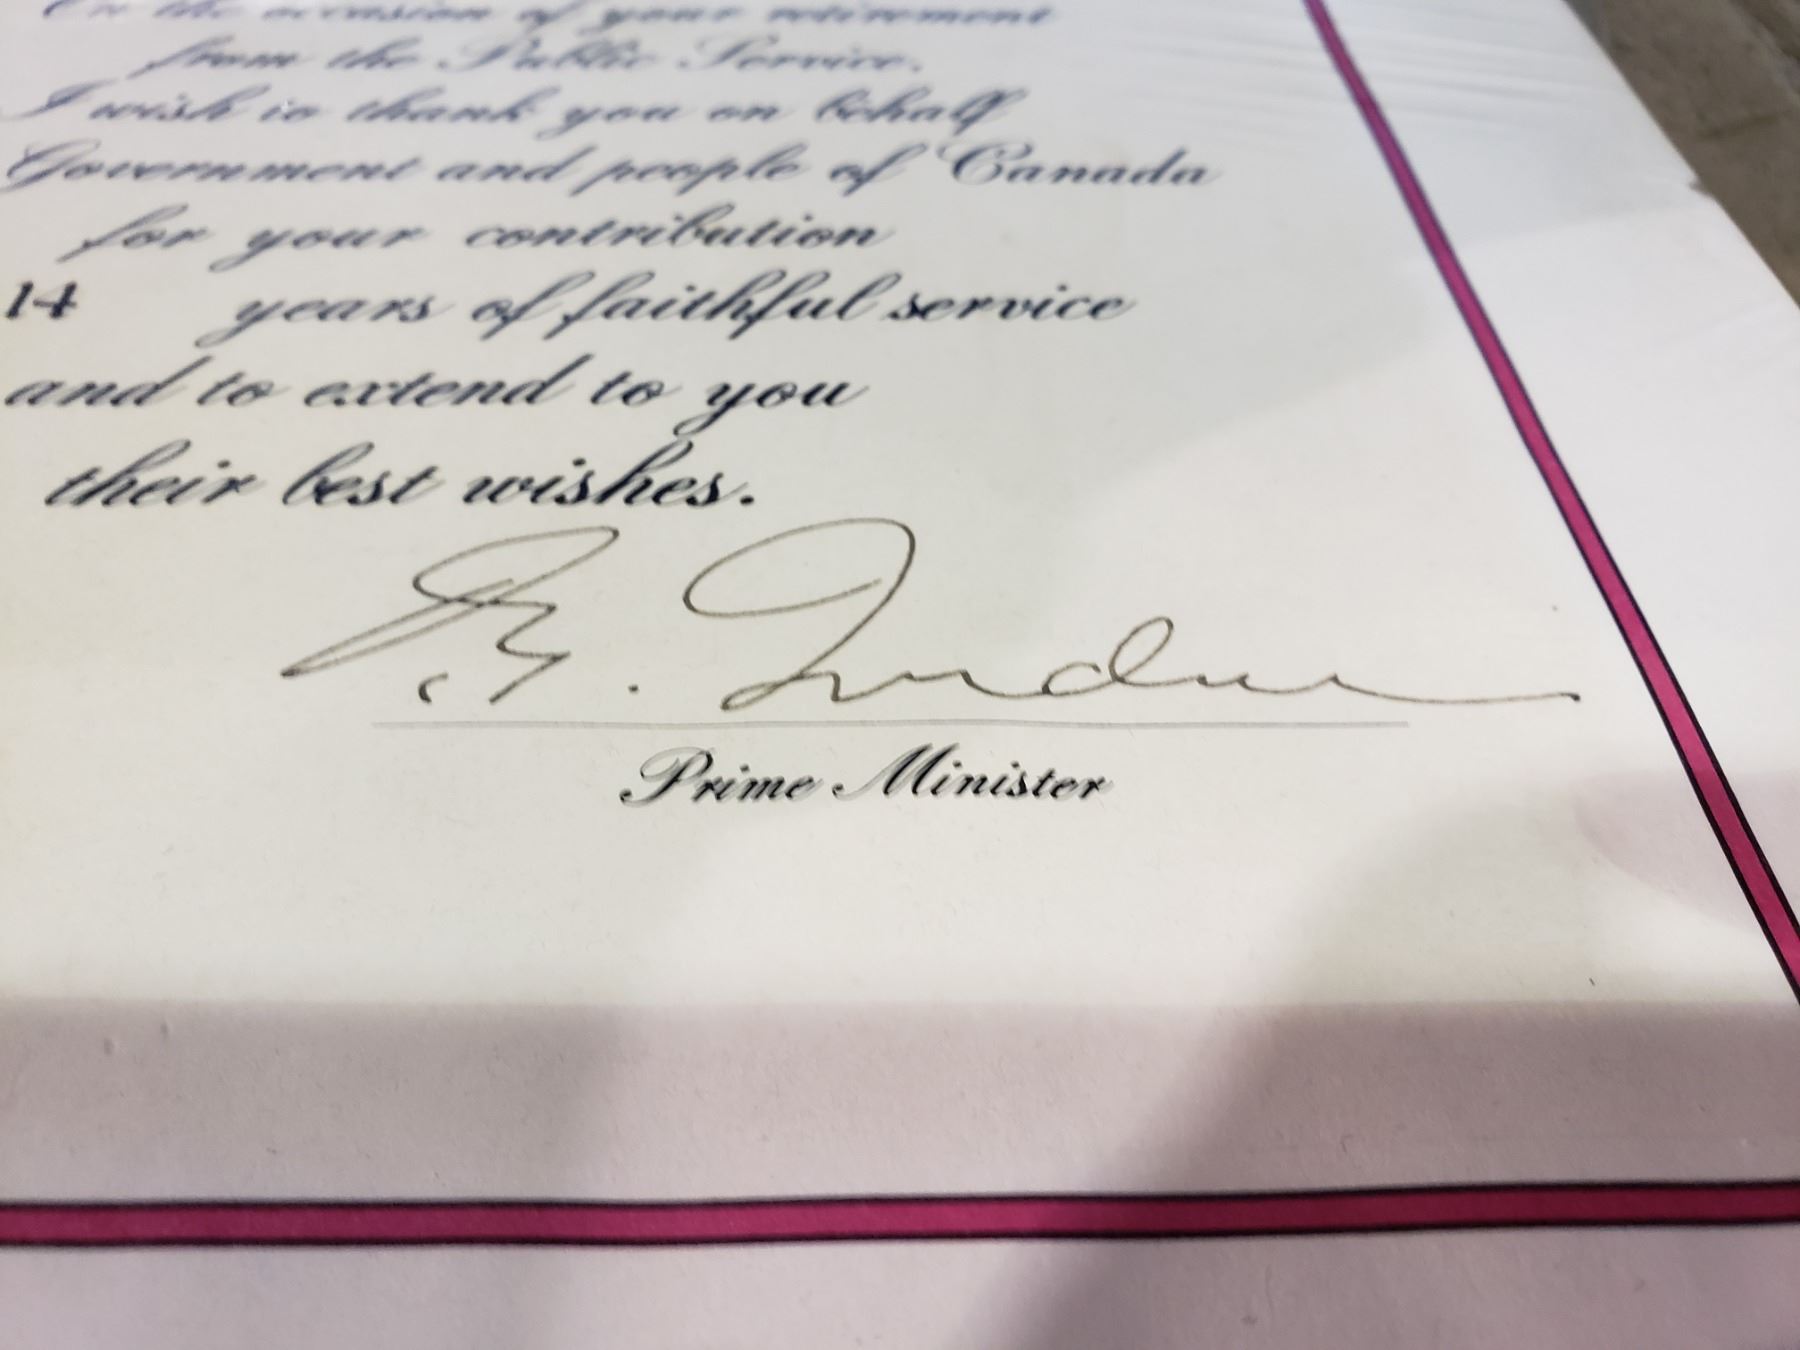 On the occasion of your retirement
from the Public Service,
I wish to thank you on behalf
Government and people of Canada
for your contribution
14 years of faithful service
and to extend to you
their best wishes.
Prime Minister